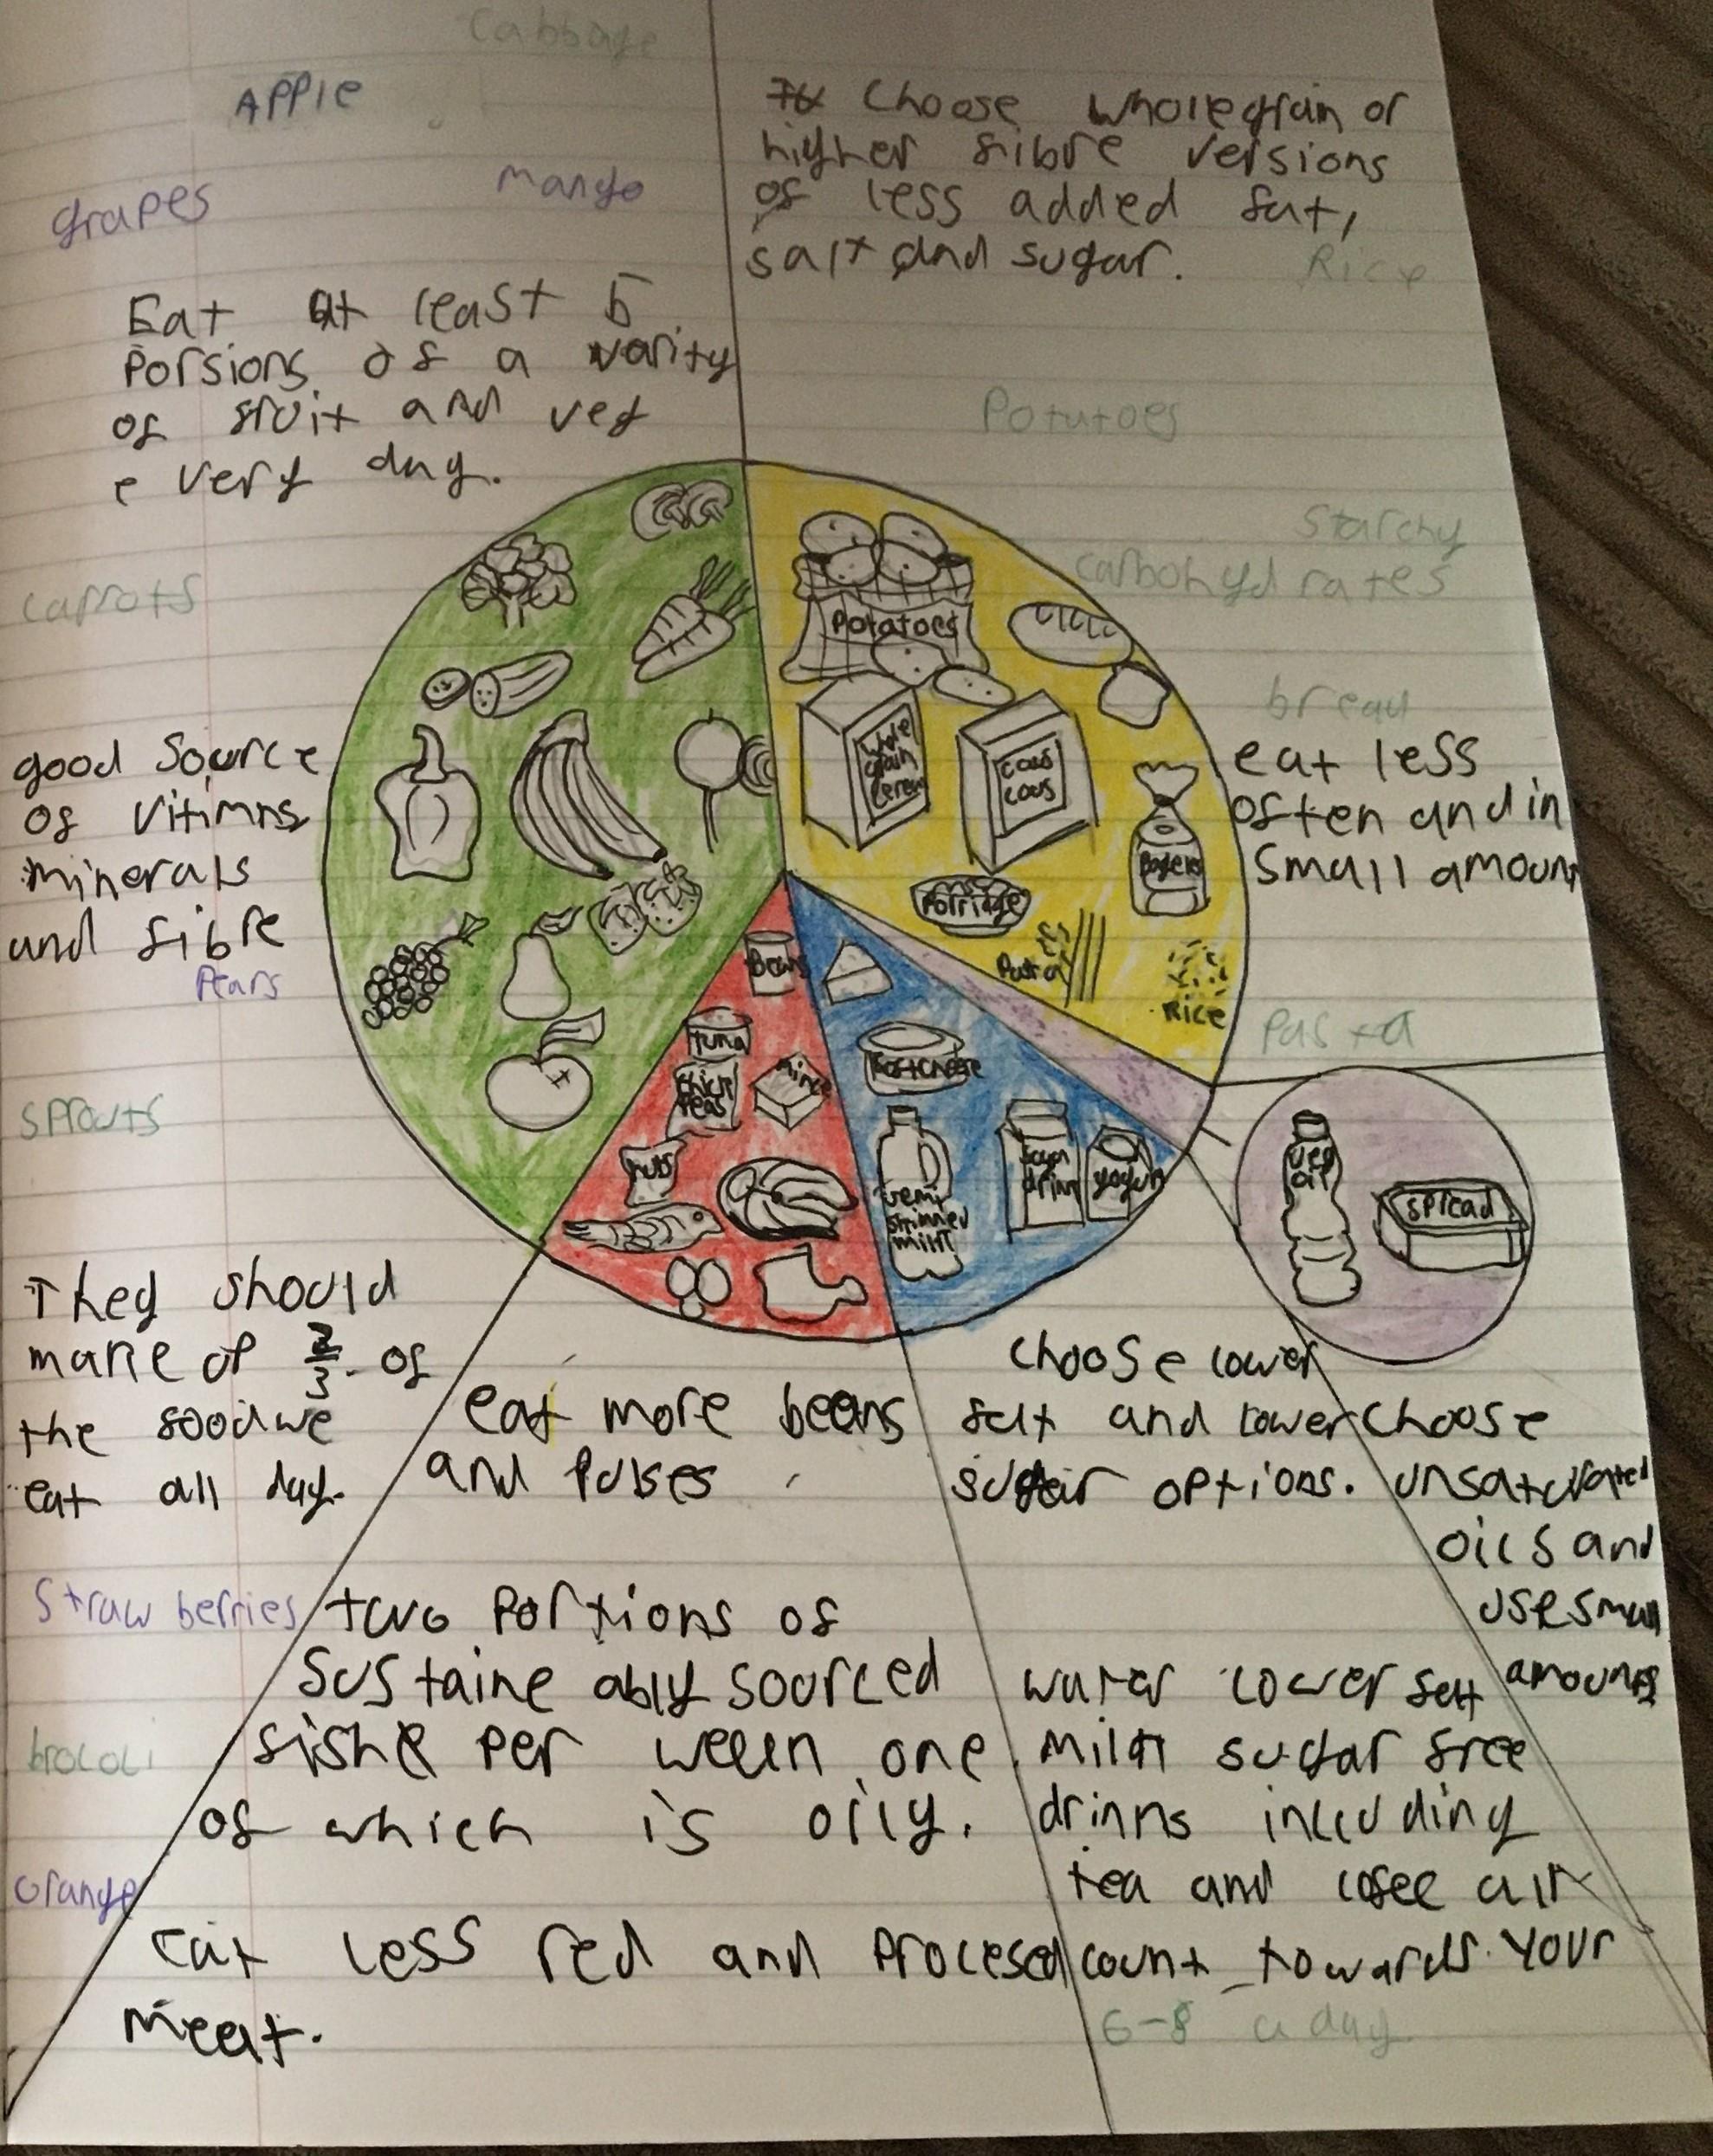 cabbage
APPle
mango
grapes
Eat at least 5
Porsions of a varity
of fruit and veg
every day.
carrots
good source
of vitimns
minerals
and fibre
Pears
sprouts
They should
make up 2/3 of
the food we
eat all day.
Straw berries
brocoli
orange
choose wholegrain or
higher fibre versions
of less added fat,
salt and sugar.
Rice
Potatoes
Starchy
carbohydrates
bread
eat less
often and in
small amount
Pasta
Potatoes
whole
grain
cereal
cous
cous
Bagels
Porridge
Pasta
Rice
Beans
tuna
chick
peas
mince
nuts
Soft cheese
semi
skimmed
milk
soya
drink
yogurt
veg
oil
spread
eat more beans
and Pulses
two Portions of
sustaine ably sourced
fishe per week one
of which is oily.
Eat less red and Procesed
meat.
choose lower
fat and lower
sugar options.
choose
unsaturated
oils and
use small
amounts
water lower fat
milk sugar free
drinks inlcuding
tea and cofee all
count towards your
6-8 a day